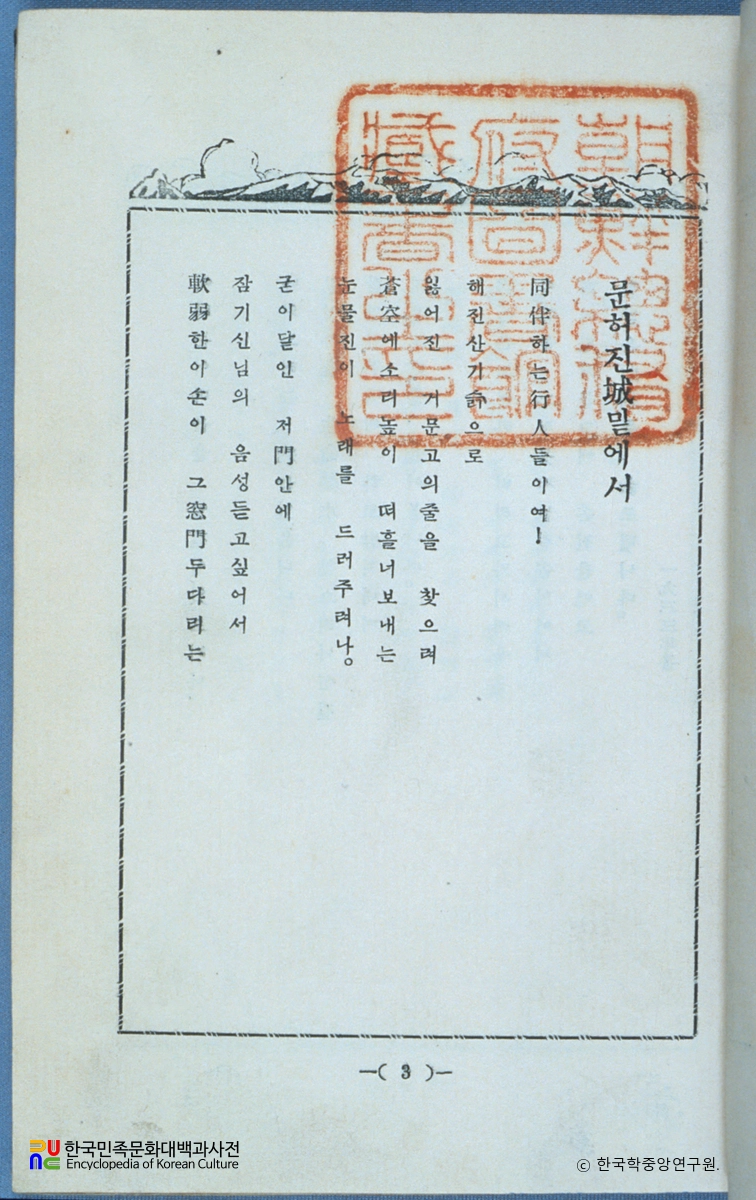 문허진城밑에서
同伴하는行人들아여!
해진산기슭으로
잃어진 거문고의줄을 찾으려
蒼空에소리높이 떠흘너보내는
눈물진이 노래를 드러주려나。
굳이달인 저門안에
잠기신님의 음성듣고싶어서
軟弱한이손이 그窓門두다리는
朝鮮總督
府圖書館
藏書之印
—( 3 )—
한국민족문화대백과사전
Encyclopedia of Korean Culture
ⓒ 한국학중앙연구원.